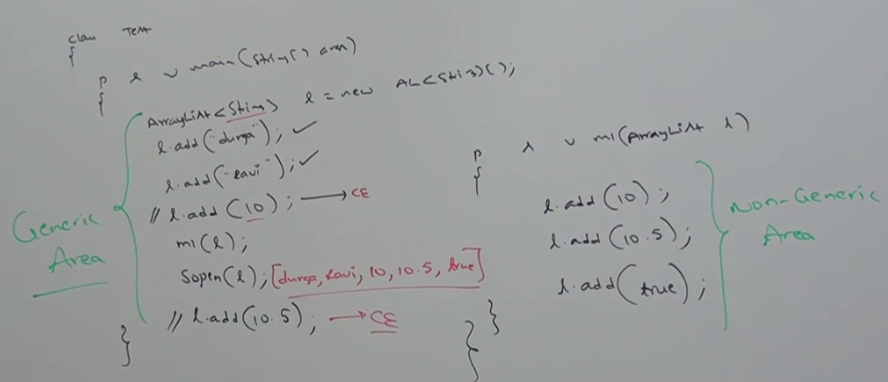 class Test
{
p s v main(String[] args)
{
ArrayList<String> l = new AL<String>();
l.add("durga"); ✓
l.add("ravi"); ✓
// l.add(10); → CE
m1(l);
sopln(l); [durga, ravi, 10, 10.5, true]
// l.add(10.5); → CE
}
Generic
Area
p s v m1(ArrayList l)
{
l.add(10);
l.add(10.5);
l.add(true);
}
}
Non-Generic
Area